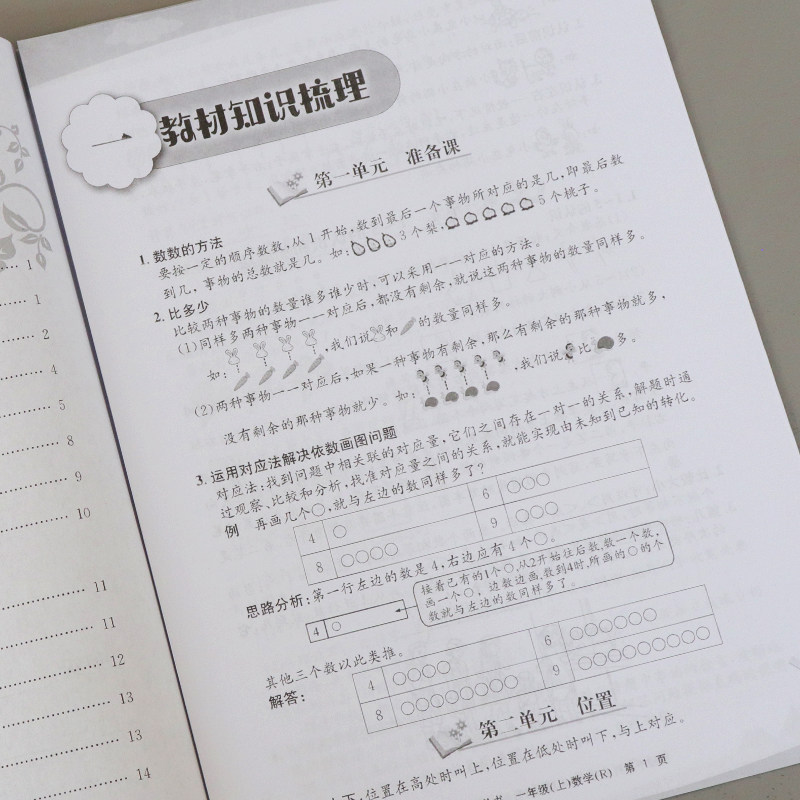 一 教材知识梳理
第一单元 准备课
1. 数数的方法
要按一定的顺序数数,从1开始,数到最后一个事物所对应的是几,即最后数
到几,事物的总数就是几。如:3个梨,5个桃子。
2. 比多少
比较两种事物的数量谁多谁少时,可以采用一一对应的方法。
(1)同样多两种事物一一对应后,都没有剩余,就说这两种事物的数量同样多。
如:,我们说和的数量同样多。
(2)两种事物一一对应后,如果一种事物有剩余,那么有剩余的那种事物就多,
没有剩余的那种事物就少。如:,我们说比多。
3. 运用对应法解决依数画图问题
对应法:找到问题中相关联的对应量,它们之间存在一对一的关系,解题时通
过观察、比较和分析,找准对应量之间的关系,就能实现由未知到已知的转化。
例 再画几个○,就与左边的数同样多了?
4 ○ 6 ○○○
8 ○○○○ 9 ○○○
思路分析:第一行左边的数是4,右边应有4个○。
4 ○
接着已有的1个○,从2开始往后数,数一个数,
画一个○,边数边画,数到4时,所画的○的个
数就与左边的数同样多了。
其他三个数以此类推。
解答:
4 ○○○○ 6 ○○○○○○
8 ○○○○○○○○ 9 ○○○○○○○○○
第二单元 位置
下,位置在高处时叫上,位置在低处时叫下,与上对应。
一年级(上)数学(R) 第 1 页
1
1
2
4
5
8
9
10
11
11
12
13
13
14